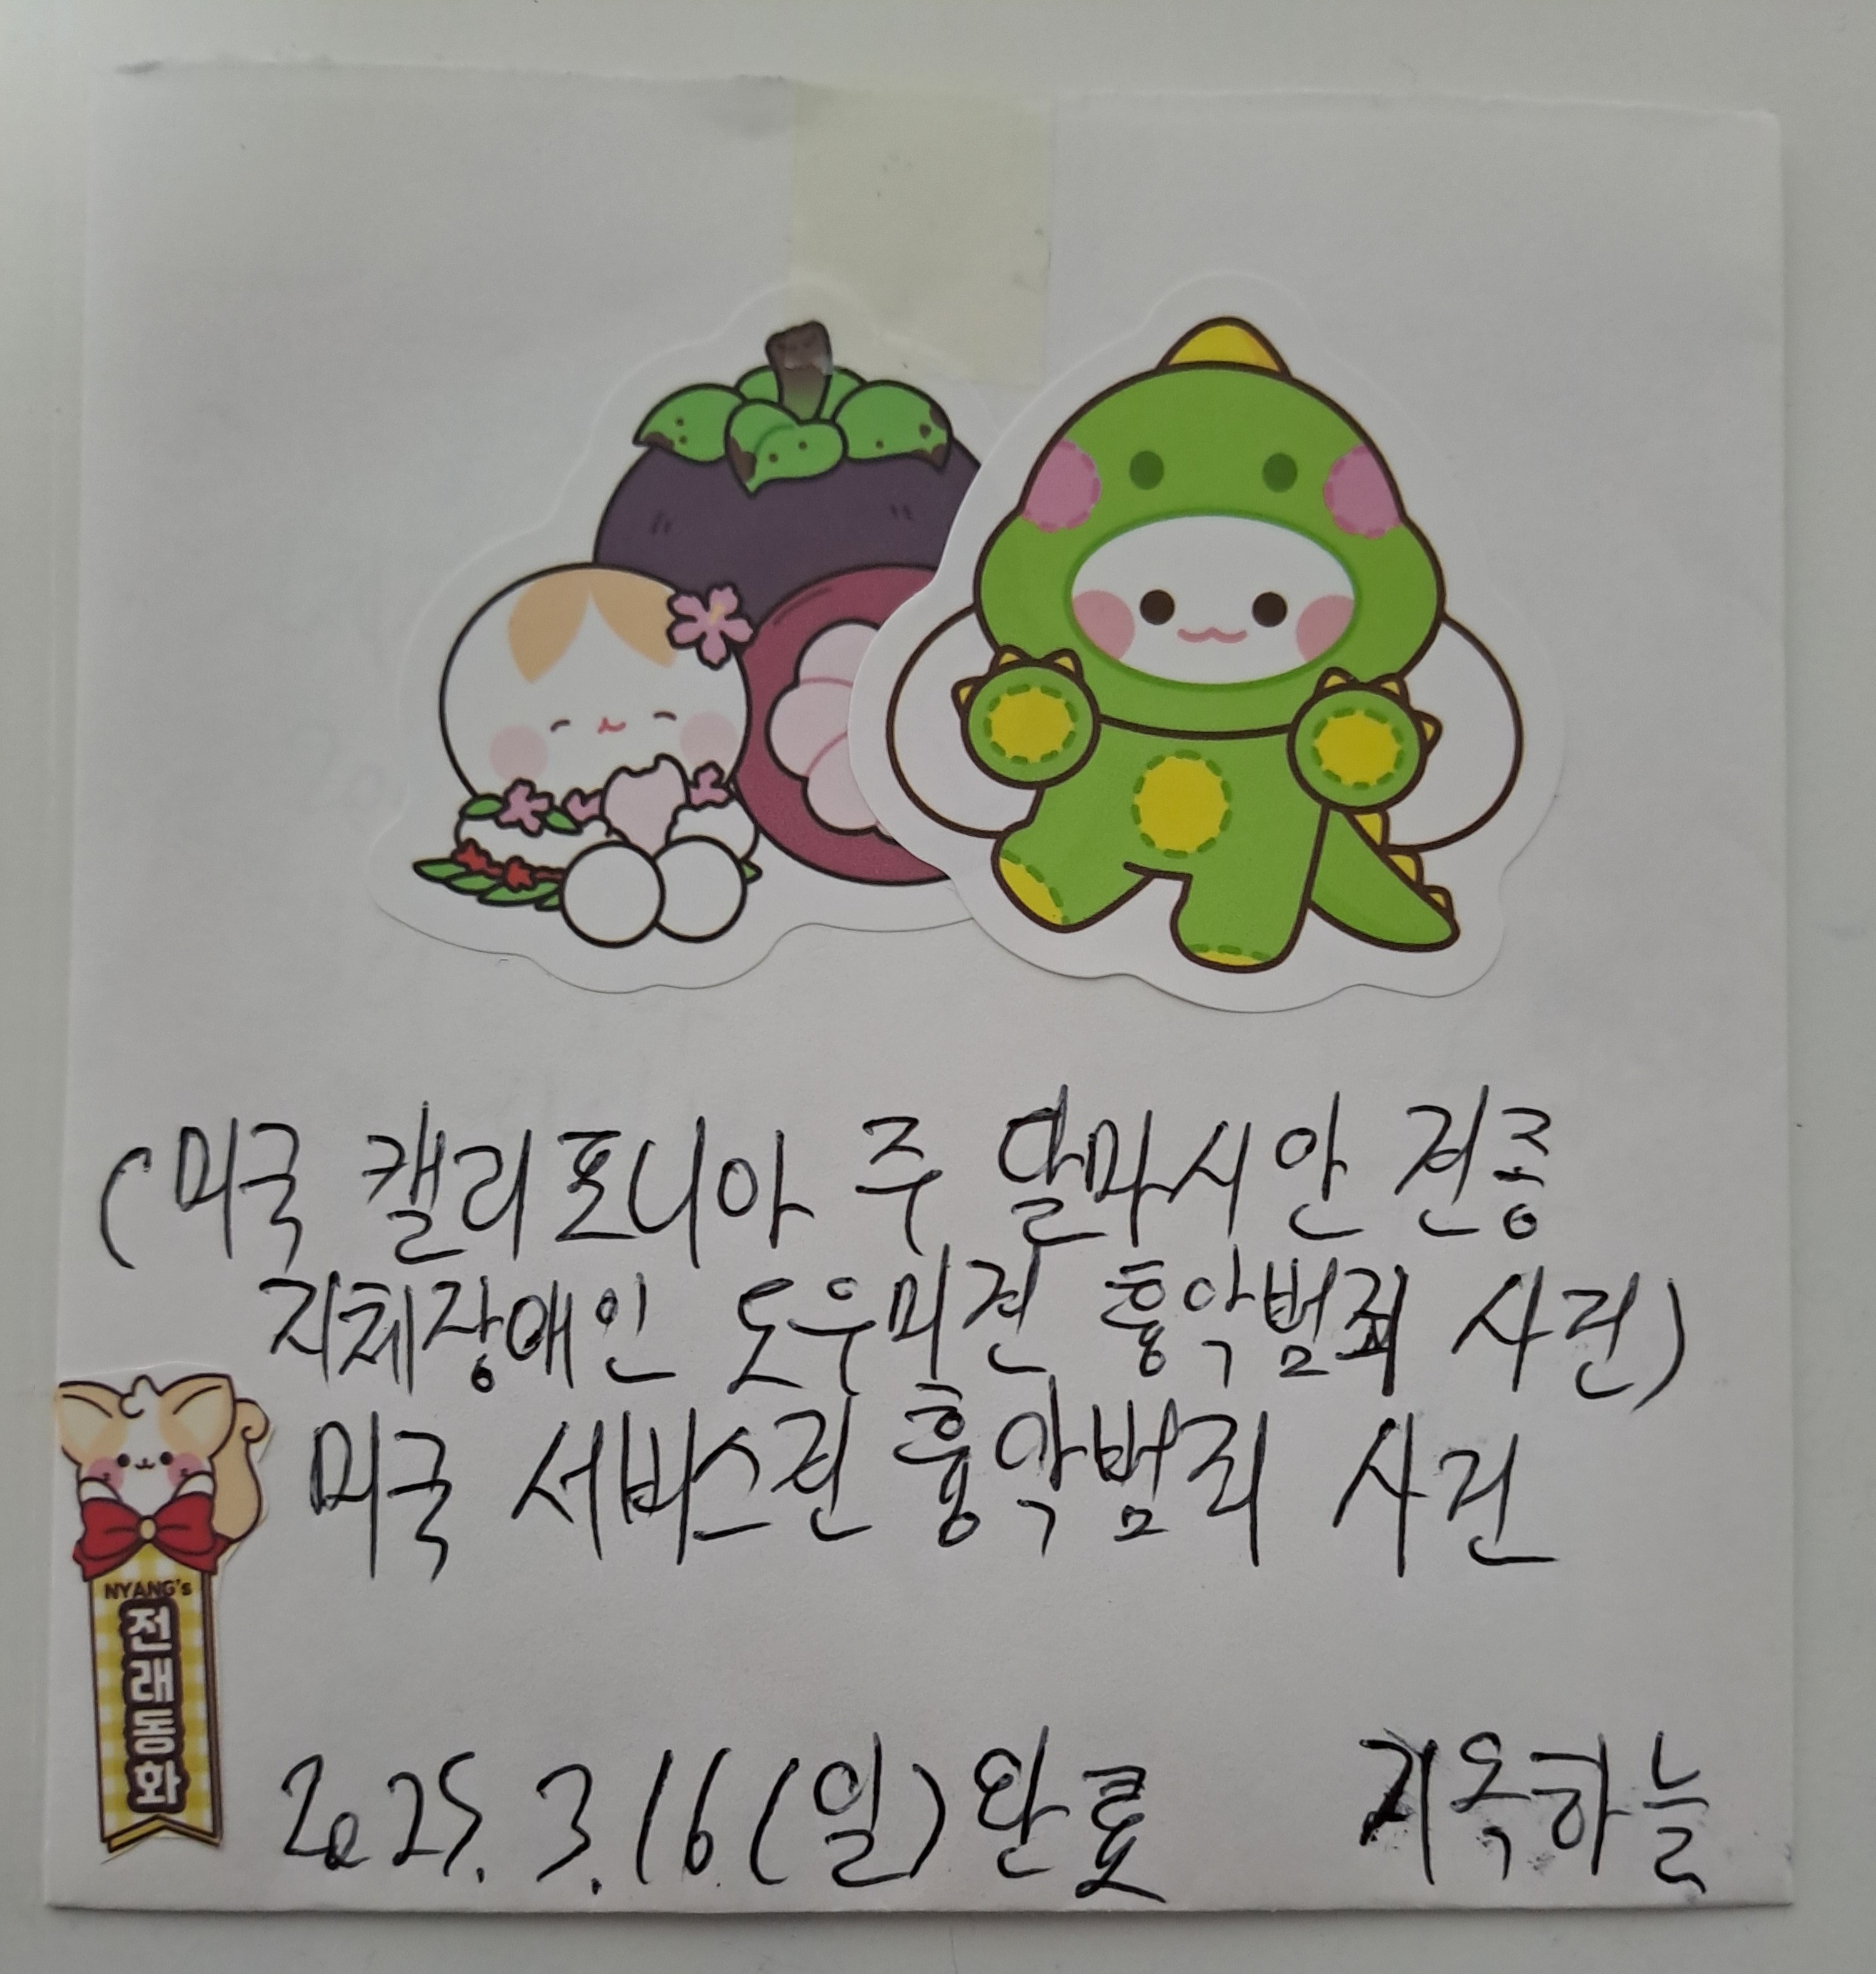 (미국 캘리포니아 주 달마시안 견종
지체장애인 도우미견 흉악범죄 사건)
미국 서비스견 흉악범죄 사건
NYANG's
전래동화
2025. 3. 16(일) 완료 지옥하늘